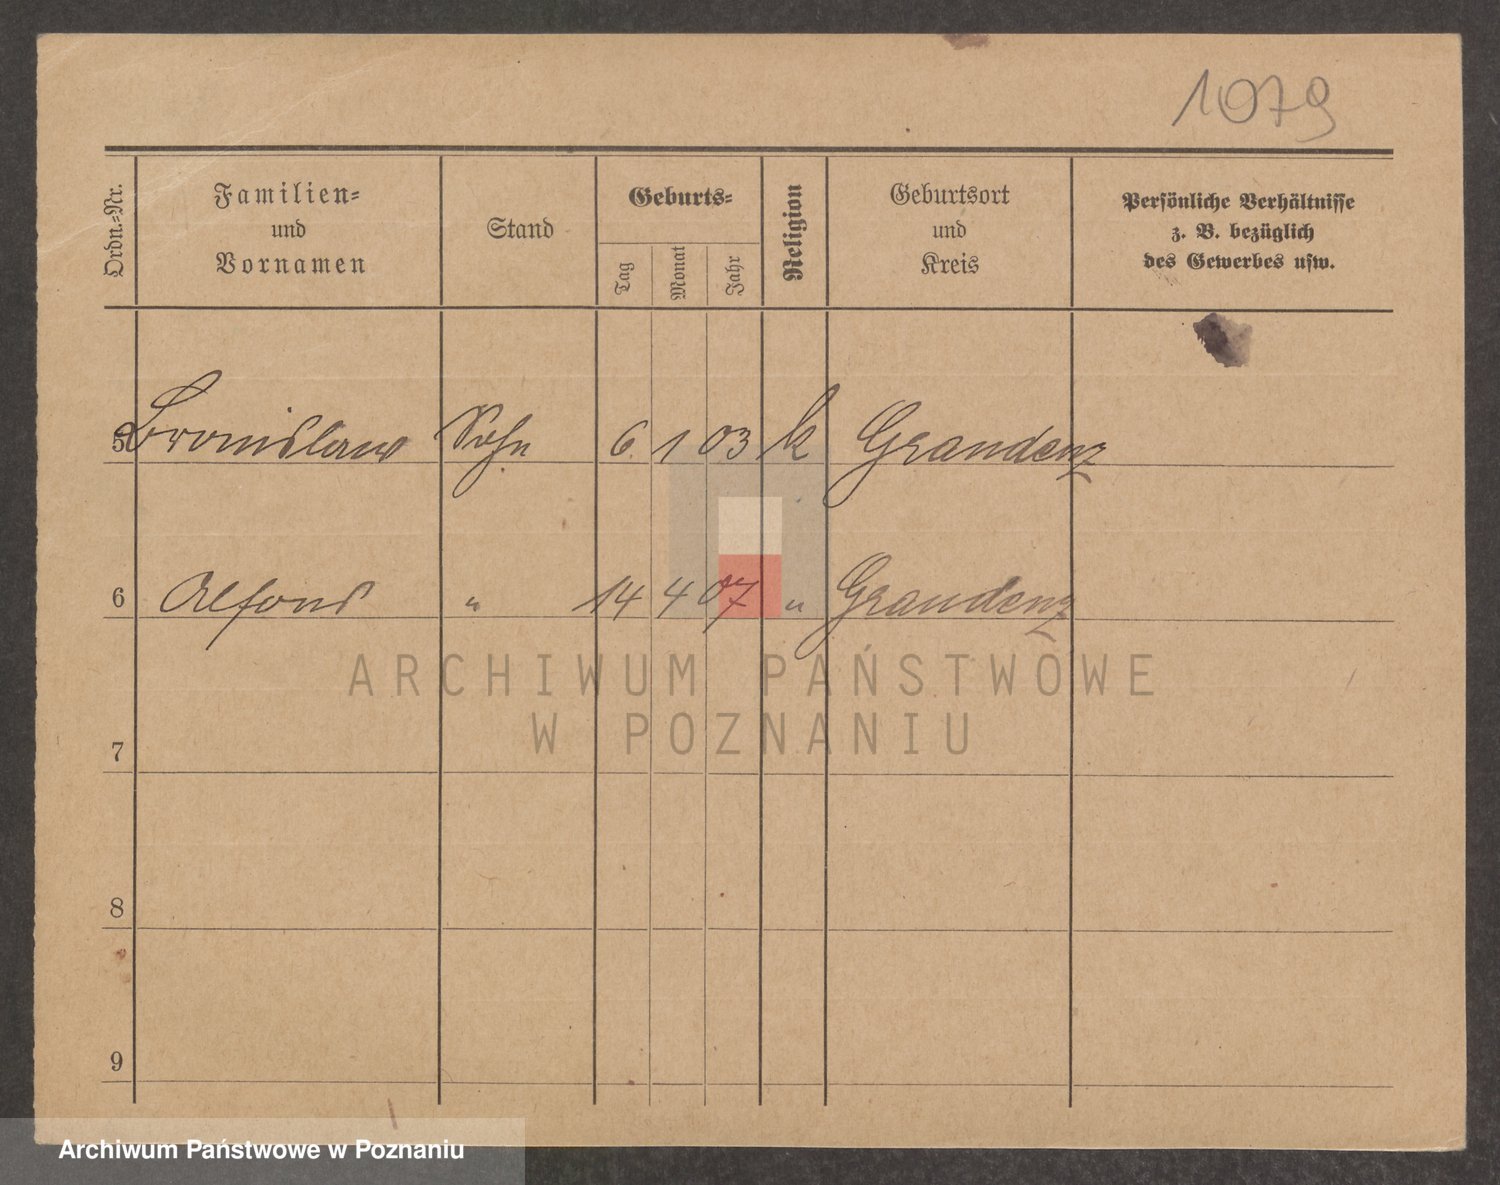 1079
Ordn.-Nr.
Familien-
und
Vornamen
Stand
Geburts-
Tag
Monat
Jahr
Religion
Geburtsort
und
Kreis
Persönliche Verhältnisse
z. B. bezüglich
des Gewerbes usw.
5 Bronislaus Sohn 6 1 03 k Graudenz
6 Alfons " 14 4 07 " Graudenz
ARCHIWUM PAŃSTWOWE
W POZNANIU
7
8
9
Archiwum Państwowe w Poznaniu